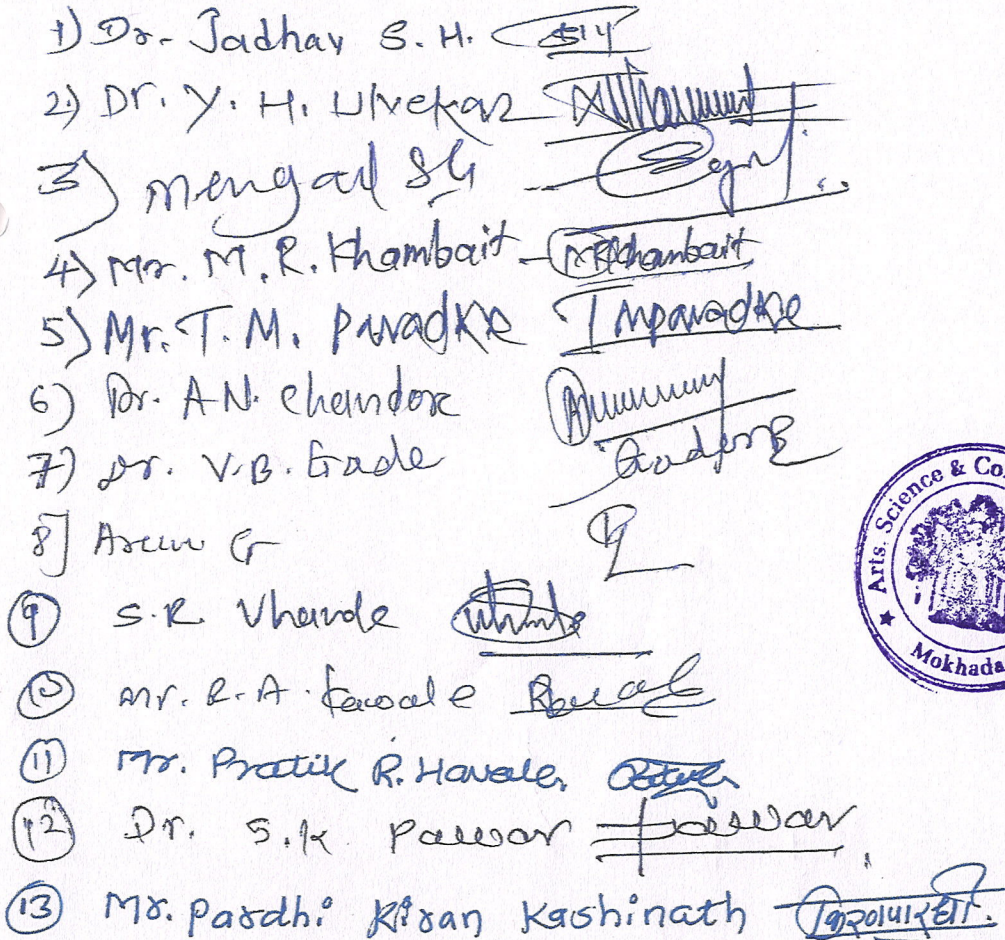 1) Dr. Jadhav S. H.
2) Dr. Y. H. Ulvekar
3) Mengad SG
4) Mr. M. R. Khambait MRKhambait
5) Mr. T. M. Paradke TMParadke
6) Dr. A N. Chandore
7) Dr. V. B. Gade
8] Arun G
9 S. R. Vhande
10 Mr. R. A. Kawale
11 Mr. Pratik R. Havale
12 Dr. S. K Pawar Pawar
13 Mr. Pardhi Kiran Kashinath
Arts, Science & Co
Mokhada